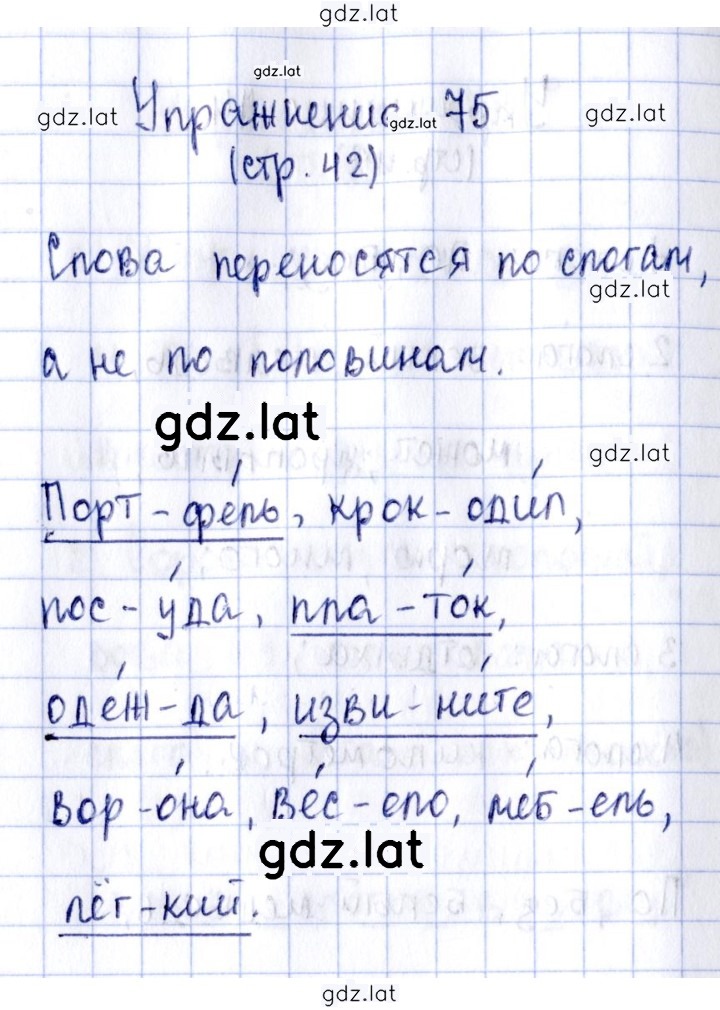 gdz.lat
gdz.lat
gdz.lat Упражнение gdz.lat 75 gdz.lat
(стр. 42)
Слова переносятся по слогам,
gdz.lat
а не по половинам.
gdz.lat
gdz.lat
Порт - фе́ль, крок - оди́л,
пос - у́да, пла - то́к,
оде́ж - да, изви - ни́те,
вор - о́на, ве́с - ело, ме́б - ель,
gdz.lat
лёг - кий.
gdz.lat